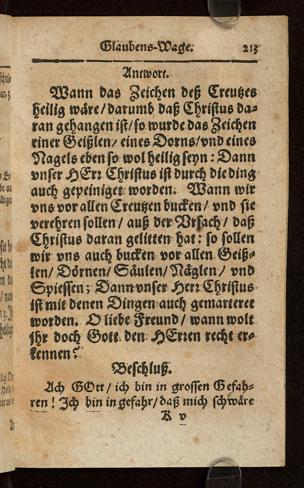 Glaubens-Wage. 213
Antwort.
Wann das Zeichen deß Creutzes
heilig wäre / darumb daß Christus da-
ran gehangen ist / so wurde das Zeichen
einer Geißlen / eines Dorns / vnd eines
Nagels eben so wol heilig seyn: Dann
vnser HErr Christus ist durch die ding
auch gepeiniget worden. Wann wir
vns vor allen Creutzen bucken / vnd sie
verehren sollen / auß der Vrsach / daß
Christus daran gelitten hat: so sollen
wir vns auch bucken vor allen Geiß-
len / Dörnen / Säulen / Näglen / vnd
Spiessen; Dann vnser Herr Christus
ist mit denen Dingen auch gemarteret
worden. O liebe Freund / wann wolt
jhr doch Gott den HErren recht er-
kennen?
Beschluß.
Ach GOtt / ich bin in grossen Gefah-
ren! Ich bin in gefahr / daß mich schwäre
K v